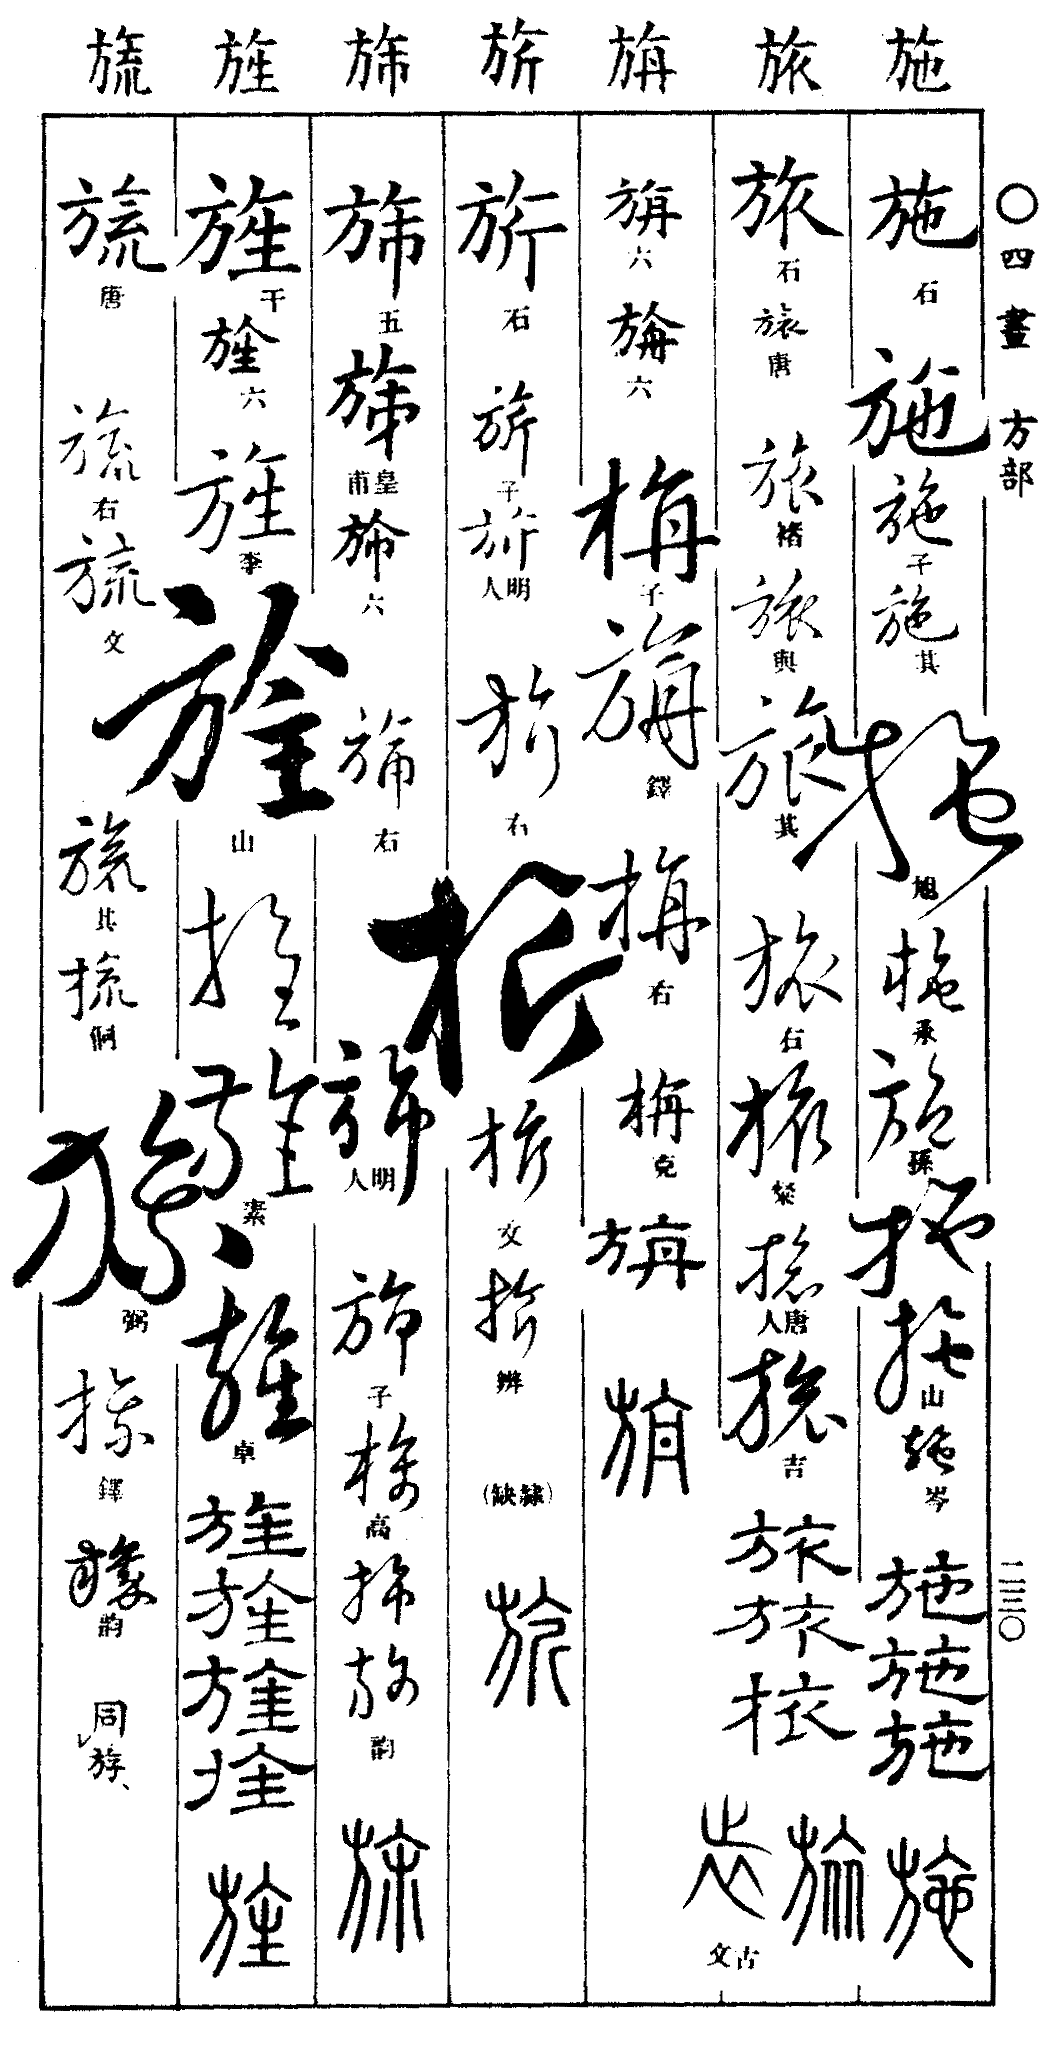 〇四畫 方部 二三〇
施 旅 旃 旂 旆 旌 旒
施 石 施 施 子 施 其 施 旭 施 承 施 孫 施 施 山 施 岑 施 施 施 施
旅 石 旅 唐 旅 褚 旅 與 旅 其 旅 右 旅 旅 唐人 旅 吉 旅 旅 旅 旅 古文
旃 六 旃 六 旃 子 旃 鐸 旃 右 旃 克 旃 旃
旂 石 旂 子 旂 明人 旂 右 旂 旂 文 旂 辨 (隸缺) 旂
旆 五 旆 皇甫 旆 六 旆 右 旆 明人 旆 子 旆 高 旆 旆 韵 旆
旌 干 旌 六 旌 李 旌 山 旌 旌 素 旌 卓 旌 旌 旌 旌 旌
旒 唐 旒 右 旒 文 旒 其 旒 侗 旒 弼 旒 鐸 旒 韵 同